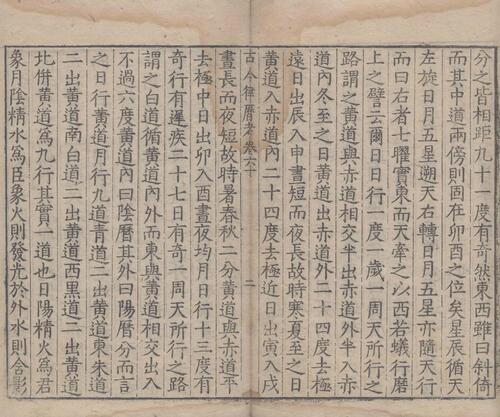 分之皆相距九十一度有奇然東西雖曰斜倚
而其中道兩傍則固在卯酉之位矣星辰循天
左旋日月五星遡天右轉日月五星亦隨天行
而曰右者七曜實東而天牽之以西若蟻行磨
上之譬云爾日日行一度一歲一周天所行之
路謂之黃道與赤道相交半出赤道外半入赤
道內冬至之日黃道出赤道外二十四度去極
遠日出辰入申晝短而夜長故時寒夏至之日
黃道入赤道內二十四度去極近日出寅入戌
古今律曆考卷六十 二
晝長而夜短故時暑春秋二分黃道與赤道平
去極中日出卯入酉晝夜均月日行十三度有
奇行有遲疾二十七日有奇一周天所行之路
謂之白道循黃道內外而東與黃道相交出入
不過六度黃道內曰陰曆其外曰陽曆分而言
之日行黃道月行九道青道二出黃道東朱道
二出黃道南白道二出黃道西黑道二出黃道
北併黃道爲九行其實一道也日陽精火爲君
象月陰精水爲臣象火則發光於外水則含影